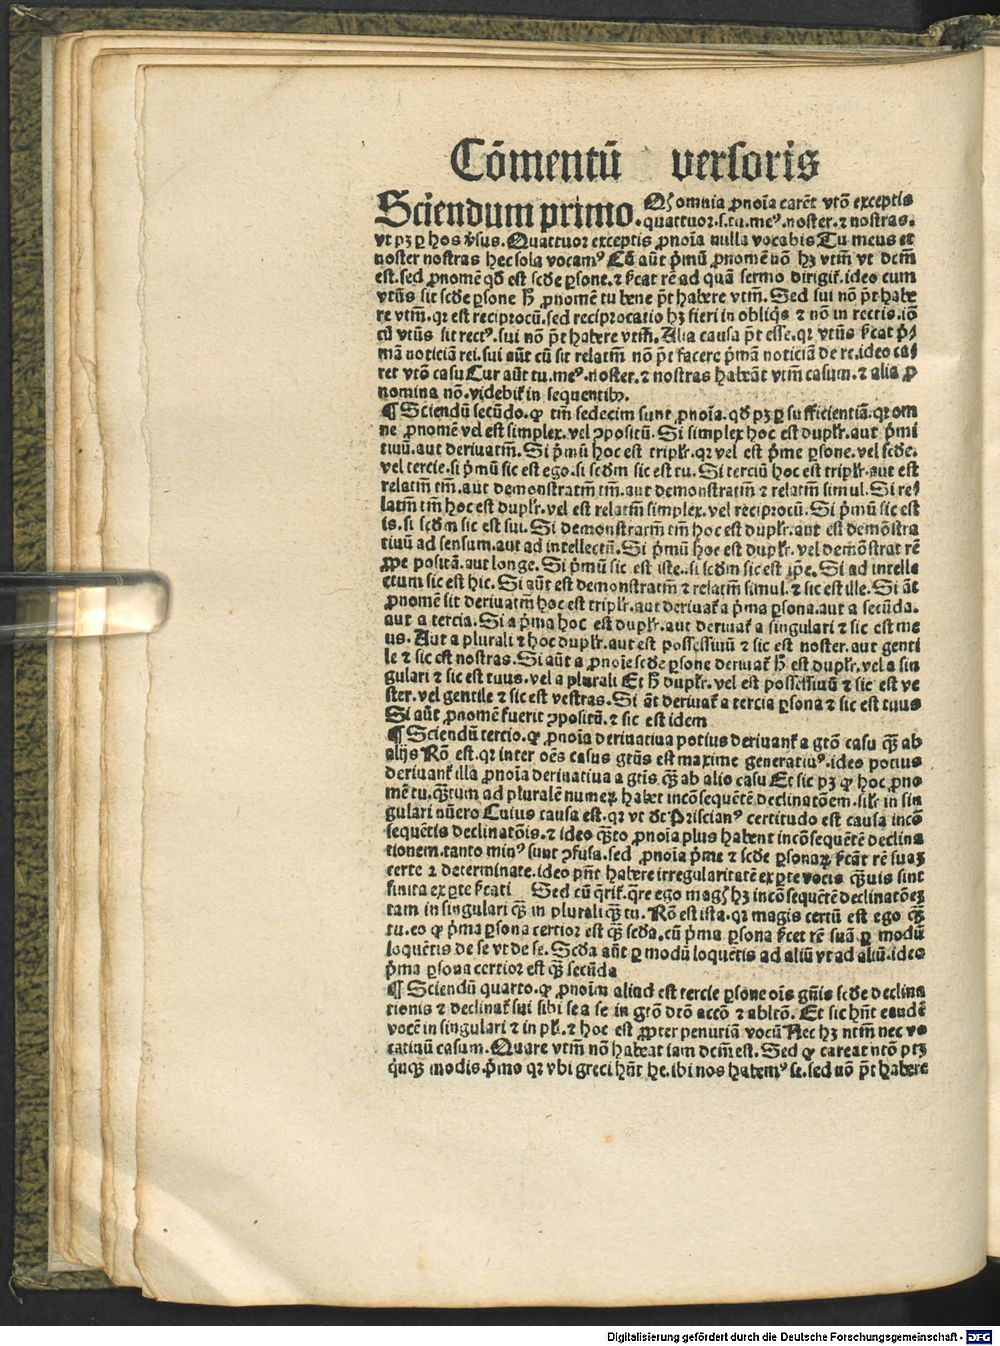 Cōmentū versoris
Sciendum primo. Qꝫ omnia ꝓnoīa carēt vtō exceptis
.quattuor.s.tu.meꝰ.noster.⁊ nostras.
vt pꝫ ꝑ hos v̄sus. Quattuor exceptis ꝓnoīa nulla vocabis Tu meus et
noster nostras hec sola vocamꝰ Cū aūt p̄mū ꝓnomē nō hꝫ vtm̄ vt dcm̄
est.sed ꝓnomē qd̄ est scd̄e ꝑsone.⁊ s̄cat rē ad quā sermo dirigit̄.ideo cum
vtūs sit scd̄e ꝑsone h̄ ꝓnomē tu bene p̄t habere vtm̄. Sed sui nō p̄t habe
re vtm̄.qꝛ est reciprocū.sed reciprocatio hꝫ fieri in obliq̄s ⁊ nō in rectis.iō
cū vtūs sit rectꝰ.sui nō p̄t habere vtm̄. Alia causa p̄t esse.qꝛ vtūs s̄cat p̄/
mā noticiā rei.sui aūt cū sit relatm̄ nō p̄t facere p̄mā noticiā de re.ideo ca/
ret vtō casu Cur aūt tu.meꝰ.noster.⁊ nostras habeāt vtm̄ casum.⁊ alia ꝓ
nomina nō.videbit̄ in sequentibꝰ.
¶ Sciendū secūdo.ꝙ tm̄ sedecim sunt ꝓnoīa.qd̄ pꝫ ꝑ sufficientiā.qꝛ om
ne ꝓnomē vel est simplex.vel ꝯpositū. Si simplex hoc est duplr̄.aut p̄mi
tiuū.aut deriuatm̄. Si p̄mū hoc est triplr̄.qꝛ vel est p̄me ꝑsone.vel scd̄e.
vel tercie.si p̄mū sic est ego.si scd̄m sic est tu. Si terciū hoc est triplr̄.aut est
relatm̄ tm̄.aut demonstratm̄ tm̄.aut demonstratm̄ ⁊ relatm̄ simul. Si re/
latm̄ tm̄ hoc est duplr̄.vel est relatm̄ simplex.vel reciprocū. Si p̄mū sic est
is.si scd̄m sic est sui. Si demonstratm̄ tm̄ hoc est duplr̄.aut est demōstra
tiuū ad sensum.aut ad intellectū. Si p̄mū hoc est duplr̄.vel demōstrat rē
ꝓpe positā.aut longe. Si p̄mū sic est iste..si scd̄m sic est ip̄e. Si ad intelle
ctum sic est hic. Si aūt est demonstratm̄ ⁊ relatm̄ simul.⁊ sic est ille. Si āt
ꝓnomē sit deriuatm̄ hoc est triplr̄.aut deriuat̄ a p̄ma ꝑsona.aut a secūda.
aut a tercia. Si a p̄ma hoc est duplr̄.aut deriuat̄ a singulari ⁊ sic est me
us. Aut a plurali ⁊ hoc duplr̄.aut est possessiuū ⁊ sic est noster.aut genti
le ⁊ sic est nostras. Si aūt a ꝓnoīe scd̄e ꝑsone deriuat̄ h̄ est duplr̄.vel a sin
gulari ⁊ sic est tuus.vel a plurali Et h̄ duplr̄.vel est possessiuū ⁊ sic est ve
ster.vel gentile ⁊ sic est vestras. Si āt deriuat̄ a tercia ꝑsona ⁊ sic est suus
Si aūt ꝓnomē fuerit ꝯpositū.⁊ sic est idem
¶ Sciendū tercio.ꝙ ꝓnoīa deriuatiua potius deriuant̄ a gtō casu qꝫ̄ ab
alijs Rō est.qꝛ inter oēs casus gtūs est maxime generatiuꝰ.ideo potius
deriuant̄ illa ꝓnoīa deriuatiua a gtīs qꝫ̄ ab alio casu Et sic pꝫ ꝙ hoc ꝓno
mē tu.qꝫ̄tum ad pluralē numeꝝ habet incōsequētē declinatōem.silr̄ in sin
gulari nūero Cuius causa est.qꝛ vt dt̄ Priscianꝰ certitudo est causa incō
sequētis declinatōis.⁊ ideo qꝫ̄to ꝓnoīa plus habent incōsequētē declina
tionem.tanto minꝰ sunt ꝯfusa.sed ꝓnoīa p̄me ⁊ scd̄e ꝑsonaꝝ s̄cāt rē suaꝫ
certe ⁊ determinate.ideo pn̄t habere irregularitatē ex ꝑte vocis qꝫ̄uis sint
finita ex ꝑte s̄cati Sed cū q̄rit̄.q̄re ego magꝭ hꝫ incōsequētē declinatōeꝫ
tam in singulari qꝫ̄ in plurali qꝫ̄ tu. Rō est ista.qꝛ magis certū est ego qꝫ̄
tu.eo ꝙ p̄ma ꝑsona certior est qꝫ̄ scd̄a.cū p̄ma ꝑsona s̄cet rē suā ꝑ modū
loquētis de se vt de se. Scd̄a aūt ꝑ modū loquētis ad aliū vt ad aliū.ideo
p̄ma ꝑsona certior est qꝫ̄ secūda
¶ Sciendū quarto.ꝙ ꝓnoīm aliud est tercie ꝑsone oīs gn̄is scd̄e declina
tionis ⁊ declinat̄ sui sibi se a se in gtō dtō acctō ⁊ abltō. Et sic hn̄t eandē
vocē in singulari ⁊ in pl̄r.⁊ hoc est ꝓpter penuriā vocū Nec hꝫ ntm̄ nec vo
catiuū casum. Quare vtm̄ nō habeat iam dcm̄ est. Sed ꝙ careat ntō ptꝫ
q̄nqꝫ modis.p̄mo qꝛ vbi greci hn̄t he.ibi nos habemꝰ se.sed nō p̄t habere
Digitalisierung gefördert durch die Deutsche Forschungsgemeinschaft - DFG